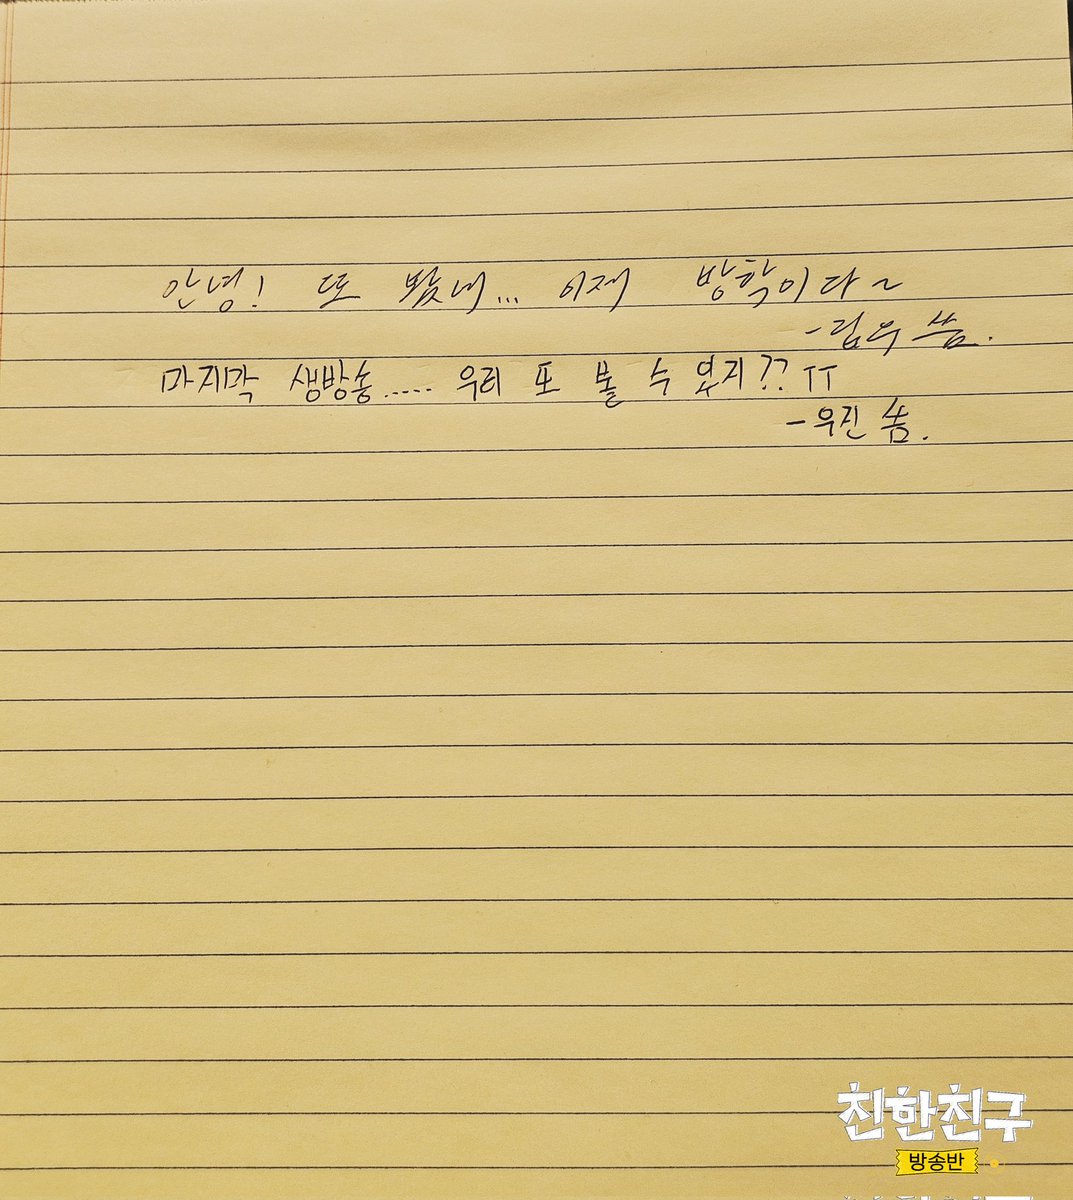 안녕! 또 봤네... 이제 방학이다~
- 립우 씀.
마지막 생방송..... 우리 또 볼 수 있지?? ㅠ
- 우진 씀.
친한친구
방송반